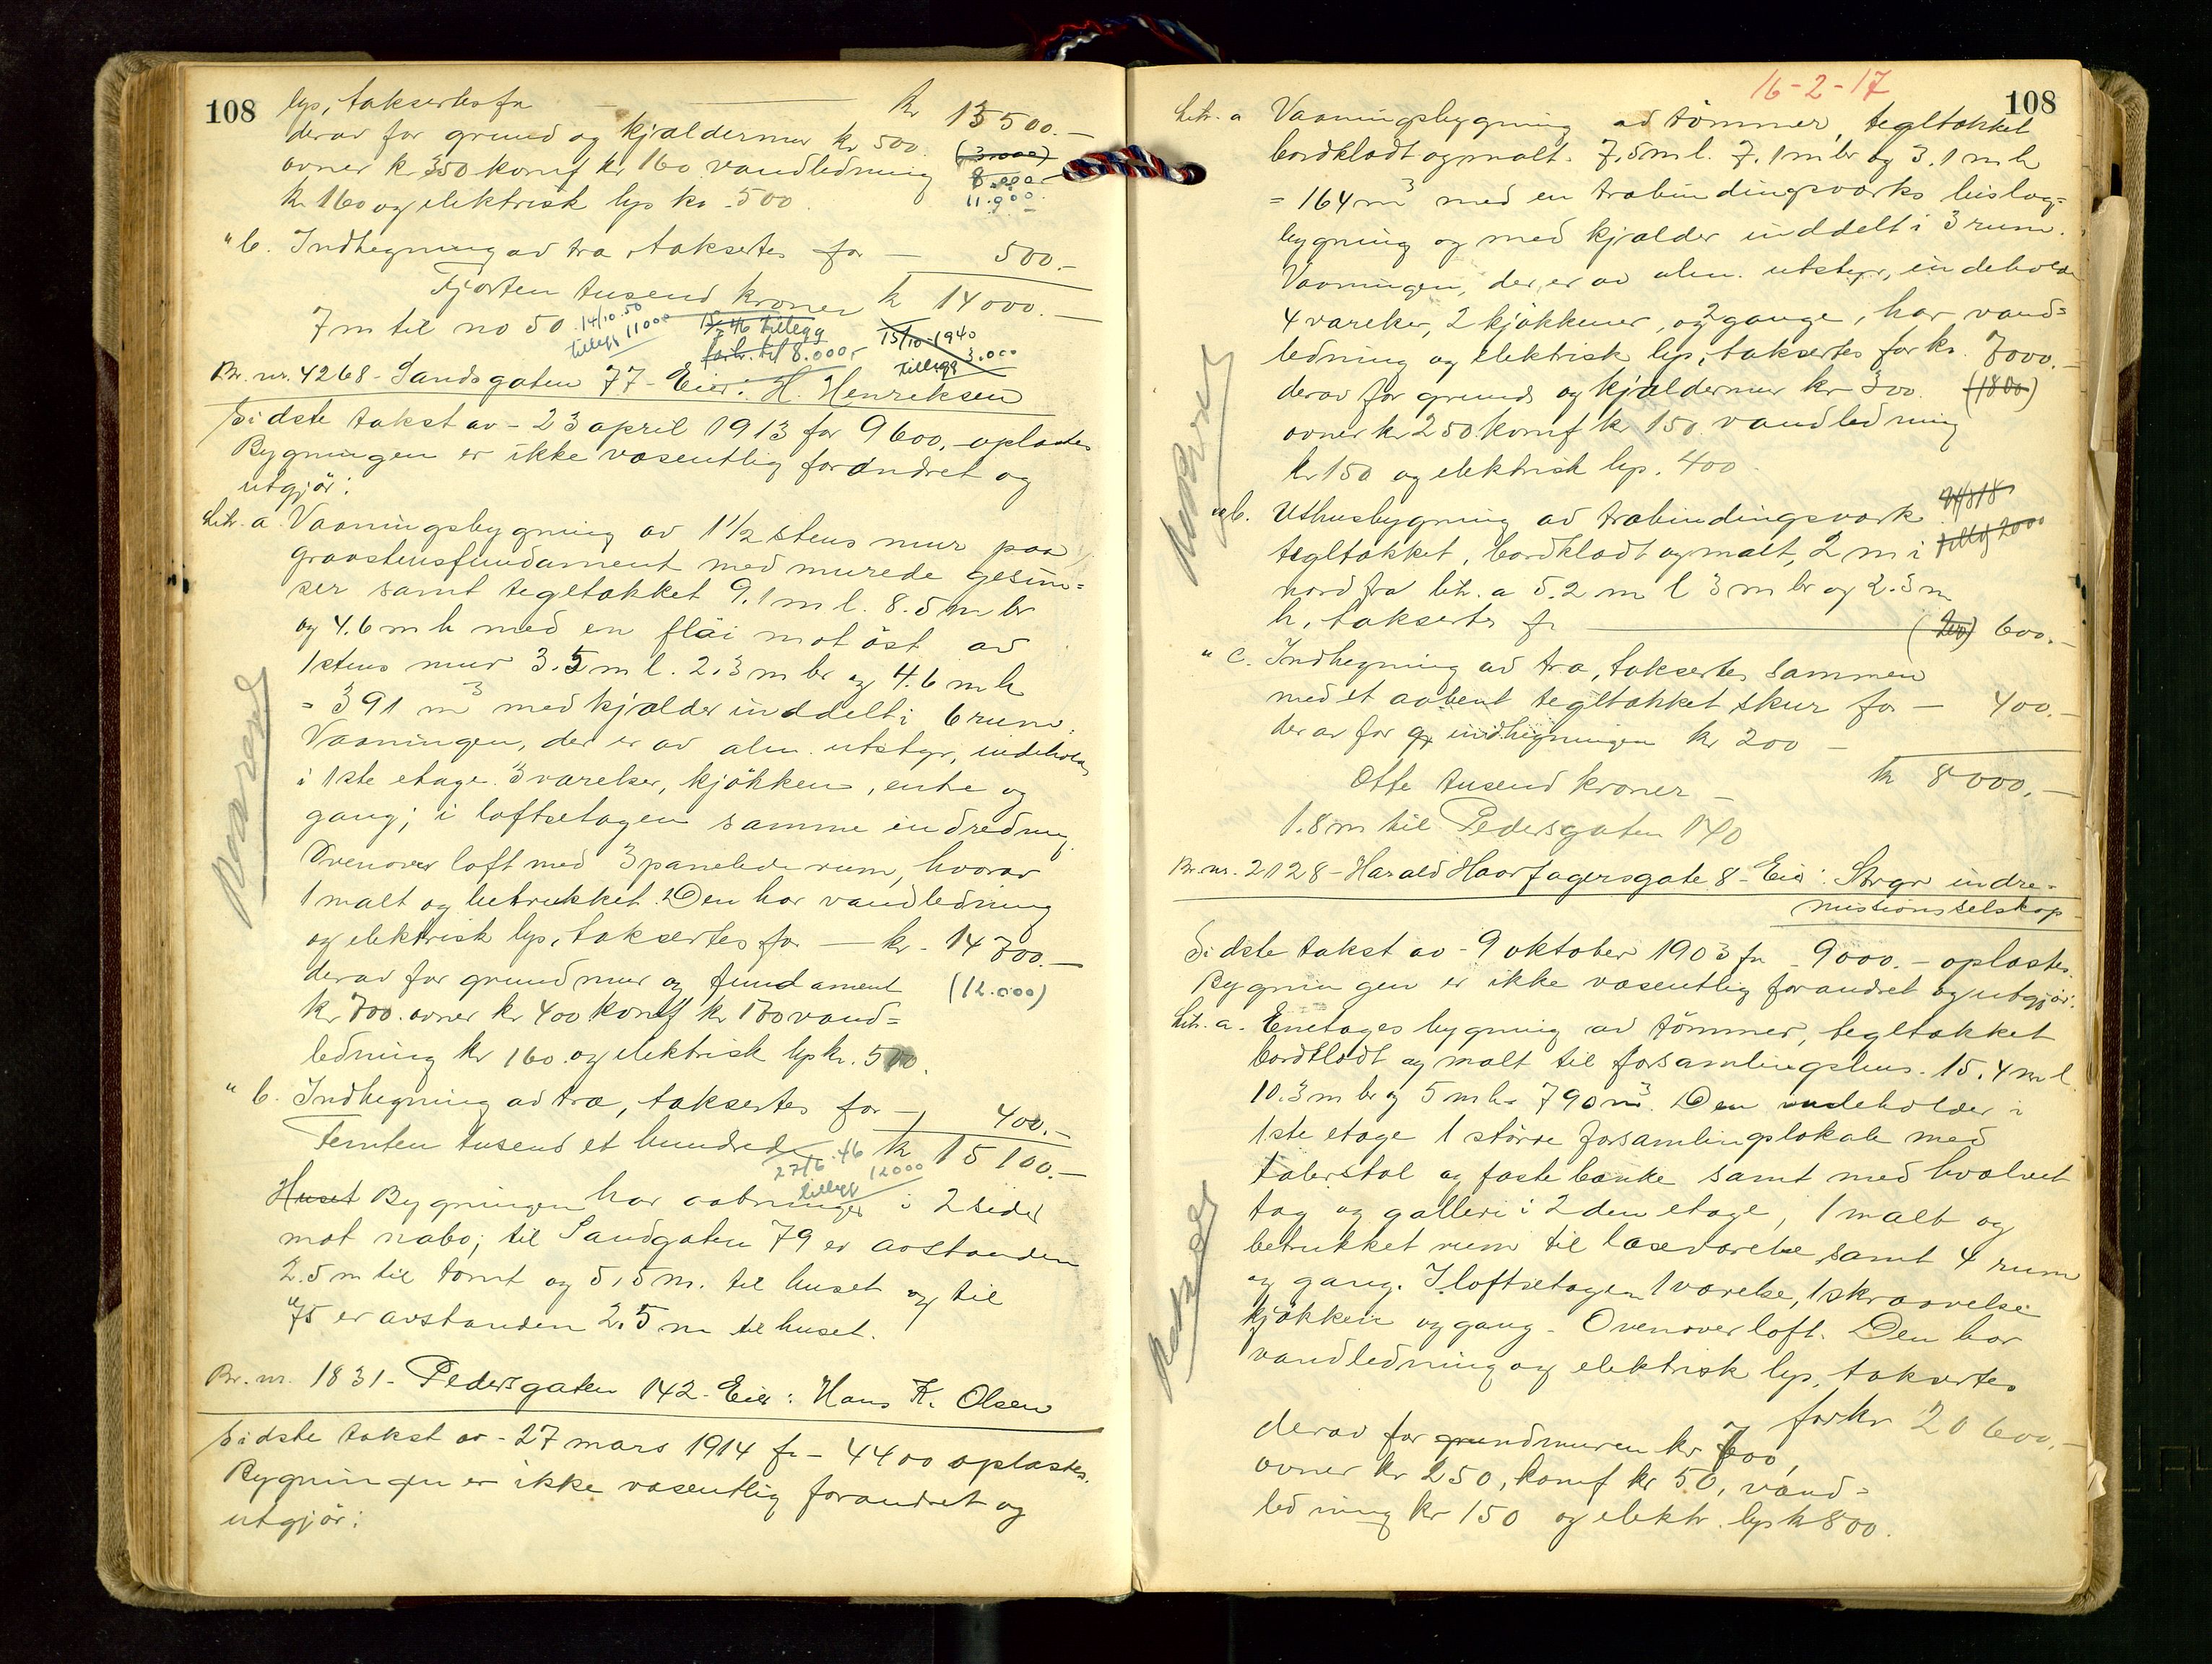 108
lys, taksertes for kr 13500.-
derav for grund og kjældermur kr 500. (3.000)
ovner kr 350 komf kr 160 vandledning 8.000
kr 160 og elektrisk lys kr. 500. 11.900.-
" b. Indhegning av træ, taksertes for - 500.-
Fjorten tusend kroner kr 14000.-
7 m til no 50. 14/10.50 tillegg 11000 tillegg forh. til 8.000,- 15/10-1940 tillegg 3.000
Br. nr. 4268 - Sandsgaten 77 - Eier: H. Henriksen
Sidste takst av - 23 april 1913 for 9600.- oplæstes
Bygningen er ikke væsentlig forandret og
utgjør:
Litr. a. Vaaningsbygning av 1 1/2 stens mur paa
graastensfundament med murede gesim=
ser samt tegltækket 9.1 m l. 8.5 m br
og 4.6 m h med en fløi mot øst av
1 stens mur 3.5 m l. 2.3 m br og 4.6 m h
= 391 m3 med kjælder inddelt i 6 rum.
Vaaningen, der er av alm. utstyr, indeholder
i 1ste etage 3 værelser, kjøkken, entre og
gang; i loftsetagen samme indredning.
Ovenover loft med 3 panelede rum, hvorav
1 malt og betrukket. Den har vandledning
og elektrisk lys, taksertes for - kr. 14700.-
derav for grundmur og fundament (12.000)
kr 700. ovner kr 400 komf kr 170 vand=
ledning kr 160. og elektrisk lys kr. 500.
" b. Indhegning av træ, taksertes for - 400.-
Femten tusend et hundrede kr 15100.-
27/6.46 tillegg 12000
Huset Bygningen har aabninger i 2 sider
mot nabo; til Sandgaten 79 er avstanden
2.5 m til tomt og 5,5 m. til huset og til
75 er avstanden 2.5 m til huset.
Br. nr. 1831 - Pedersgaten 142 - Eier: Hans K. Olsen
Sidste takst av - 27 mars 1914 for - 4400 oplæstes.
Bygningen er ikke væsentlig forandret og
utgjør:
16-2-17
108
Litr. a Vaaningsbygning av tømmer, tegltækket
bordklædt og malt. 7.5 m l. 7.1 m br og 3.1 m h
= 164 m3 med en træbindingsværks bislag=
bygning og med kjælder inddelt i 3 rum.
Vaaningen, der er av alm. utstyr, indeholder
4 værelser, 2 kjøkkener, og 2 gange, har vand=
ledning og elektrisk lys, taksertes for kr. 7000.-
derav for grund og kjældermur kr 300. (1800)
ovner kr 250 komf kr 150. vandledning
kr 150 og elektrisk lys. 400.
" b. Uthusbygning av træbindingsværk
tegltækket, bordklædt og malt, 2 m i tillegg 2000
nord fra litr. a 5.2 m l 3 m br og 2.3 m
h, taksertes for (200) 600.-
" c. Indhegning av træ, taksertes sammen
med et aabent tegltækket skur for - 400.-
derav for indhegningen kr 200 -
Otte tusend kroner - kr 8000.-
1.8 m til Pedersgaten 140
Br. nr. 2128 - Harald Haarfagersgate 8 - Eier: Stvgr indre-
missionsselskap
Sidste takst av - 9 oktober 1903 for - 9000.- oplæstes.
Bygningen er ikke væsentlig forandret og utgjør:
Litr. a. Enetages bygning av tømmer, tegltækket
bordklædt og malt til forsamlingshus. 15.4 m l.
10.3 m br og 5 m h = 790 m3. Den indeholder i
1ste etage 1 større forsamlingslokale med
talerstol og faste bænke samt med hvælvet
tag og galleri i 2den etage, 1 malt og
betrukket rum til læseværelse, samt 4 rum
og gang. I loftsetagen 1 værelse, 1 skraavelse
kjøkken og gang - Ovenover loft. Den har
vandledning og elektrisk lys, taksertes
for kr 20600.-
derav for grundmuren kr 700,
ovner kr 250, komf kr 50, vand=
ledning kr 150 og elektr. lys kr 800.